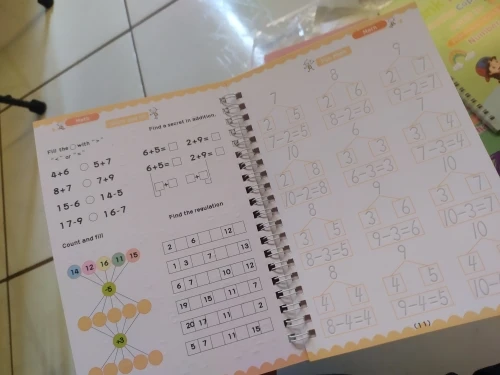 Math
Find a secret in addition.
Fill the ○ with ">"
"<" or "="
4+6 ○ 5+7
8+7 ○ 7+9
15-6 ○ 14-5
17-9 ○ 16-7
6+5=□ 2+9=□
6+5=□ 2+9=□
□+□ □+□
Count and fill
14 12 16 11 15
-5
+3
Find the regulation
2 6 12
1 3 7 13
6 7 10 12
19 15 11 7
20 17 11 2
5 7 11 15
Math
7 8 9
2 5 2 6 2 7
7-2=5 8-2=6 9-2=7
10 6 7
2 8 3 3 3 4
10-2=8 6-3=3 7-3=4
8 9 10
3 5 3 6 3 7
8-3=5 9-3=6 10-3=7
8 9 10
4 4 4 5 4
8-4=4 9-4=5 10-
(11)